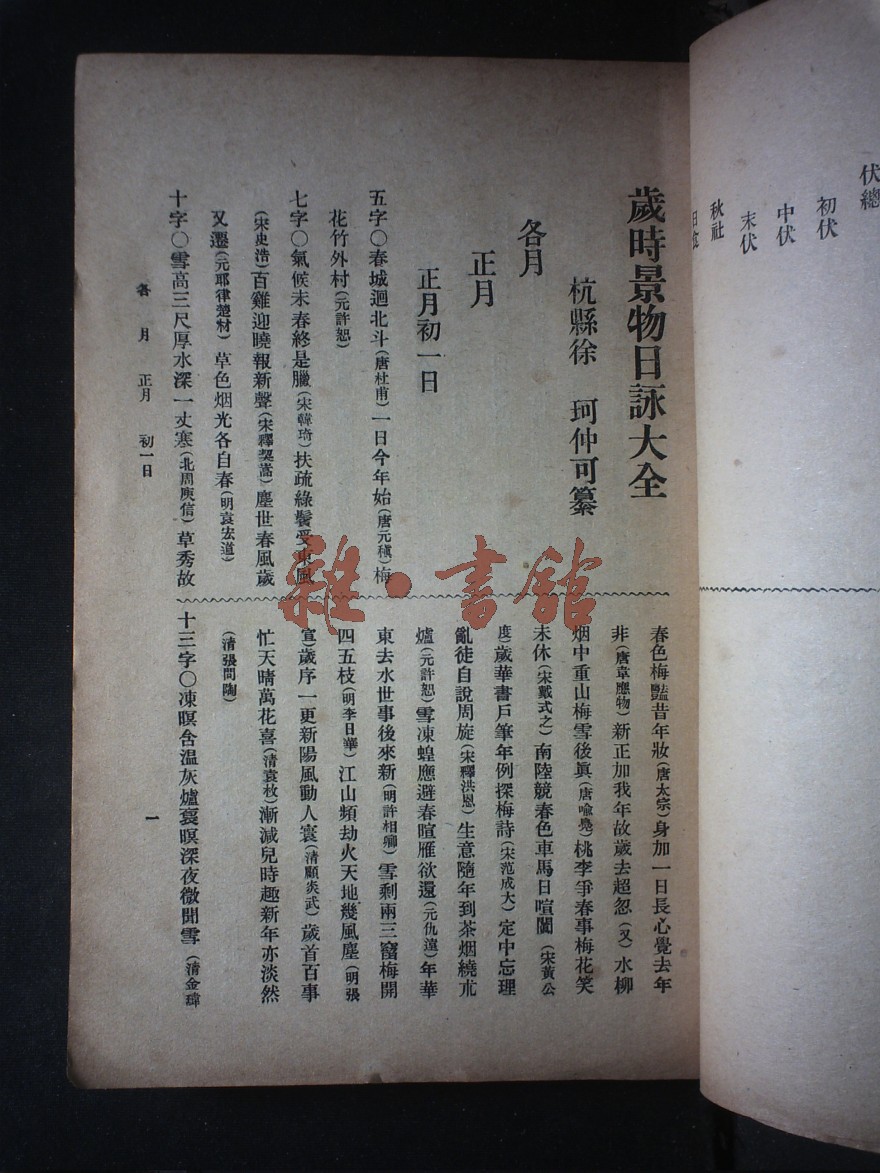 伏總
初伏
中伏
末伏
秋社
歲時景物日詠大全
杭縣徐 珂仲可纂
各月
正月
正月初一日
五字〇春城迴北斗(唐杜甫)一日今年始(唐元稹)梅
花竹外村(元許恕)
七字〇氣候未春終是臘(宋韓琦)扶疏綠鬢受東風
(宋史浩)百雞迎曉報新聲(宋釋契嵩)塵世春風歲
又遷(元耶律楚材)草色烟光各自春(明袁宏道)
十字〇雪高三尺厚水深一丈寒(北周庾信)草秀故
春色梅豔昔年妝(唐太宗)身加一日長心覺去年
非(唐韋應物)新正加我年故歲去超忽(又)水柳
烟中重山梅雪後眞(唐喻鳧)桃李爭春事梅花笑
未休(宋戴式之)南陸競春色車馬日喧闐(宋黃公
度)歲華書戶筆年例探梅詩(宋范成大)定中忘理
亂徒自說周旋(宋釋洪恩)生意隨年到茶烟繞朮
爐(元許恕)雪凍蝗應避春暄雁欲還(元仇遠)年華
東去水世事後來新(明許相卿)雪剩兩三窩梅開
四五枝(明李日華)江山頻劫火天地幾風塵(明張
宣)歲序一更新陽風動人寰(清顧炎武)歲首百事
忙天晴萬花喜(清袁枚)漸減兒時趣新年亦淡然
(清張問陶)
十三字〇凍暝含温灰爐裒暝深夜微聞雪(清金瑋
各月 正月 初一日
一
雜·書館